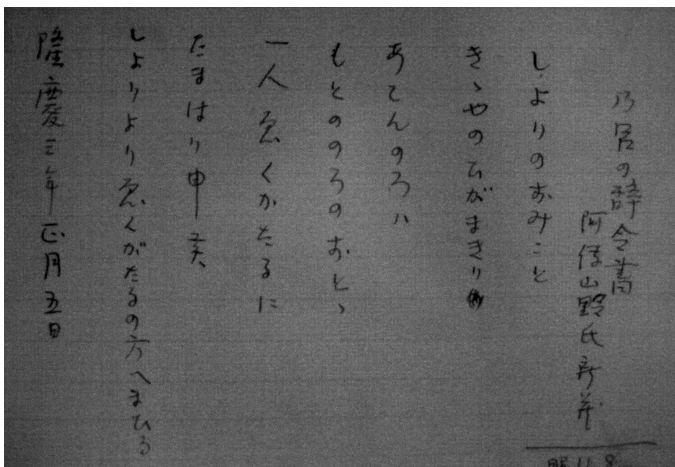 乃呂の辞令書
阿傳山野氏
しよりのおみこと
きゝやのひがまきりの
あてんのろハ
もとののろのおとゝ
一人ゑくかたるに
たまはり申候
しよりよりゑくがたるの方へまひる
隆慶三年正月五日